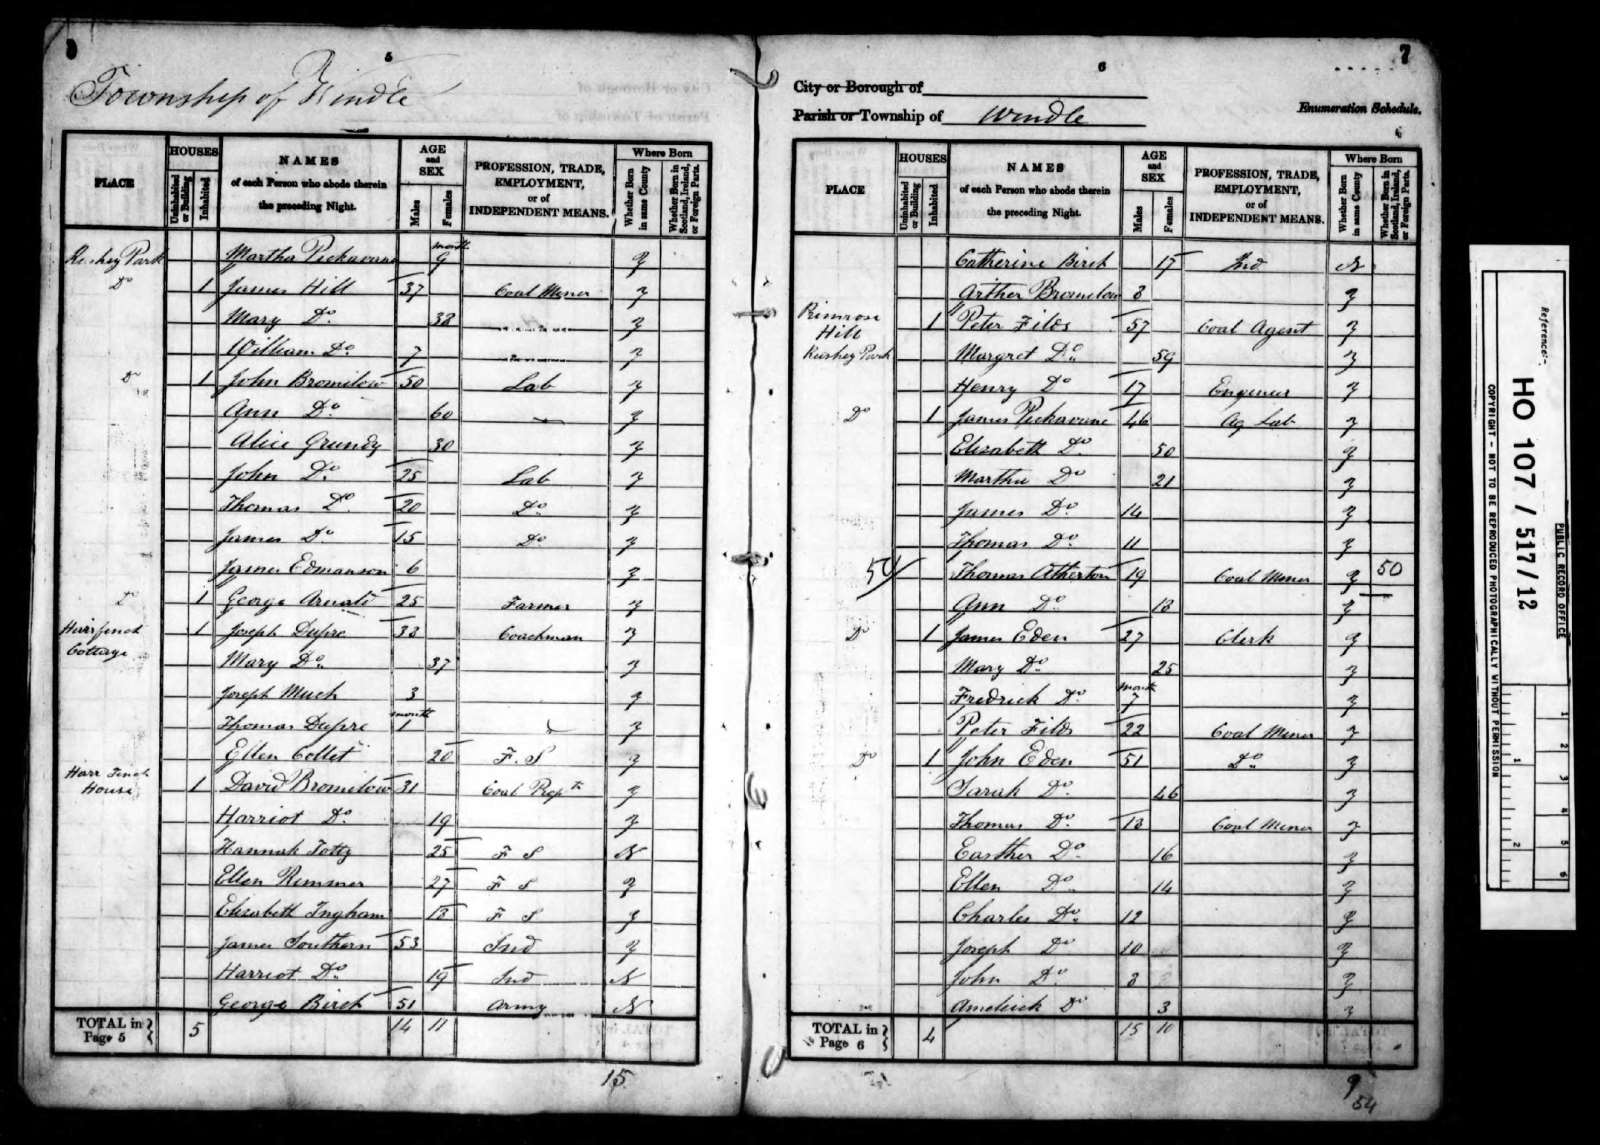 5
Township of Windle
PLACE
HOUSES
Uninhabited or Building
Inhabited
NAMES
of each Person who abode therein
the preceding Night.
AGE
and
SEX
Males
Females
PROFESSION, TRADE,
EMPLOYMENT,
or of
INDEPENDENT MEANS.
Where Born
Whether Born in same County
Whether Born in Scotland, Ireland, or Foreign Parts.
Martha month 9 y
Do 1 James Hill 37 Coal Miner y
Mary Do 38 y
William Do 7 y
Do 1 John Bromilow 50 Lab y
Ann Do 60 y
Alice Grundy 30 y
John Do 25 Lab y
Thomas Do 20 Do y
James Do 15 Do y
James Edmanson 6 y
Do 1 George 25 Farmer y
1 Joseph Dupre 33 Coachman y
Cottage
Mary Do 37 y
Joseph Much 3 y
month
Thomas Dupre 1 y
Ellen Collet 20 F. S y
House 1 David Bromilow 31 Coal y
Harriot Do 19 y
Hannah Totty 25 F S N
Ellen Rimmer 27 F S y
Elizabeth Ingham 18 F S y
James Southern 53 Ind y
Harriot Do 19 Ind N
George Birch 51 Army N
TOTAL in Page 5 5 14 11
15
6
7
City or Borough of
Parish or Township of Windle
Enumeration Schedule.
PLACE
HOUSES
Uninhabited or Building
Inhabited
NAMES
of each Person who abode therein
the preceding Night.
AGE
and
SEX
Males
Females
PROFESSION, TRADE,
EMPLOYMENT,
or of
INDEPENDENT MEANS.
Where Born
Whether Born in same County
Whether Born in Scotland, Ireland, or Foreign Parts.
Catherine Birch 17 Ind N
Arther Bromilow 8 y
Primrose
Hill 1 Peter Filds 57 Coal Agent y
Margret Do 59 y
Henry Do 17 Engineer y
Do 1 James 46 Ag Lab y
Elizabeth Do 50 y
Martha Do 21 y
James Do 14 y
Thomas Do 11 y
Thomas Atherton 19 Coal Miner y 50
Ann Do 18 y
Do 1 James Eden 27 Clerk y
Mary Do 25 y
month
Fredrick Do 7 y
Peter Filds 22 Coal Miner y
Do 1 John Eden 51 Do y
Sarah Do 46 y
Thomas Do 18 Coal Miner y
Easther Do 16 y
Ellen Do 14 y
Charles Do 12 y
Joseph Do 10 y
John Do 8 y
Do 3 y
TOTAL in Page 6 4 15 10
9
54
Reference:-
HO 107 / 517/12
PUBLIC RECORD OFFICE
COPYRIGHT - NOT TO BE REPRODUCED PHOTOGRAPHICALLY WITHOUT PERMISSION
1
2
1
2
3
4
5
6